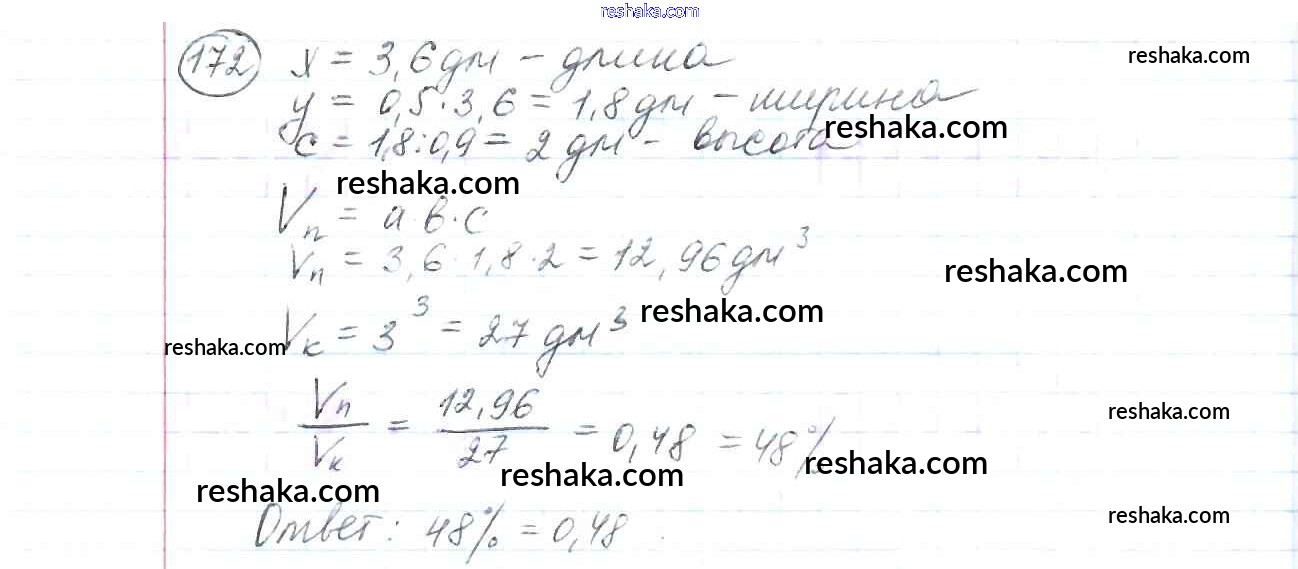 reshaka.com
172 x = 3,6 дм - длина
reshaka.com
y = 0,5·3,6 = 1,8 дм - ширина
reshaka.com
c = 1,8:0,9 = 2 дм - высота
reshaka.com
Vп = а·в·с
Vп = 3,6·1,8·2 = 12,96 дм³
reshaka.com
Vк = 3³ = 27 дм³
reshaka.com
reshaka.com
Vп/Vк = 12,96/27 = 0,48 = 48%
reshaka.com
reshaka.com
reshaka.com
reshaka.com
Ответ: 48% = 0,48.
reshaka.com